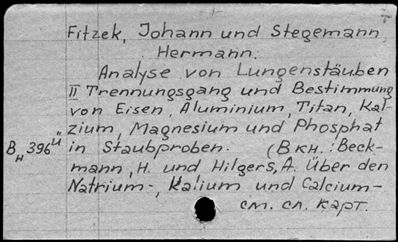 Fitzek, Johann und Stegemann,
Hermann.
Analyse von Lungenstäuben
II Trennungsgang und Bestimmung
von Eisen, Aluminium, Titan, Kal-
zium, Magnesium und Phosphat
in Staubproben. (В кн.: Beck-
mann, H. und Hilgers, A. Über den
Natrium-, Kalium und Calcium-
см. сл. карт.